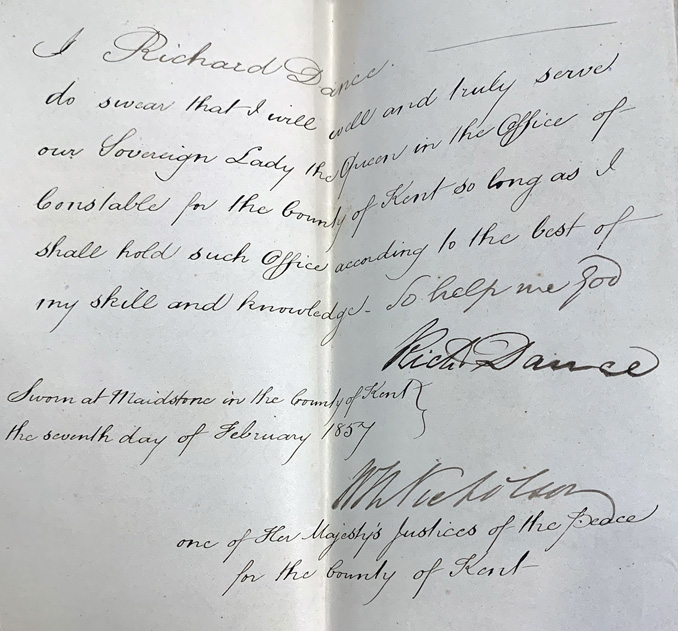 I Richard Dance.
do swear that I will well and truly serve
our Sovereign Lady the Queen in the Office of
Constable for the County of Kent so long as I
shall hold such Office according to the best of
my skill and knowledge - So help me God
Richd Dance
Sworn at Maidstone in the County of Kent }
the seventh day of February 1857
Wm Nicholson
one of Her Majesty's Justices of the Peace
for the County of Kent